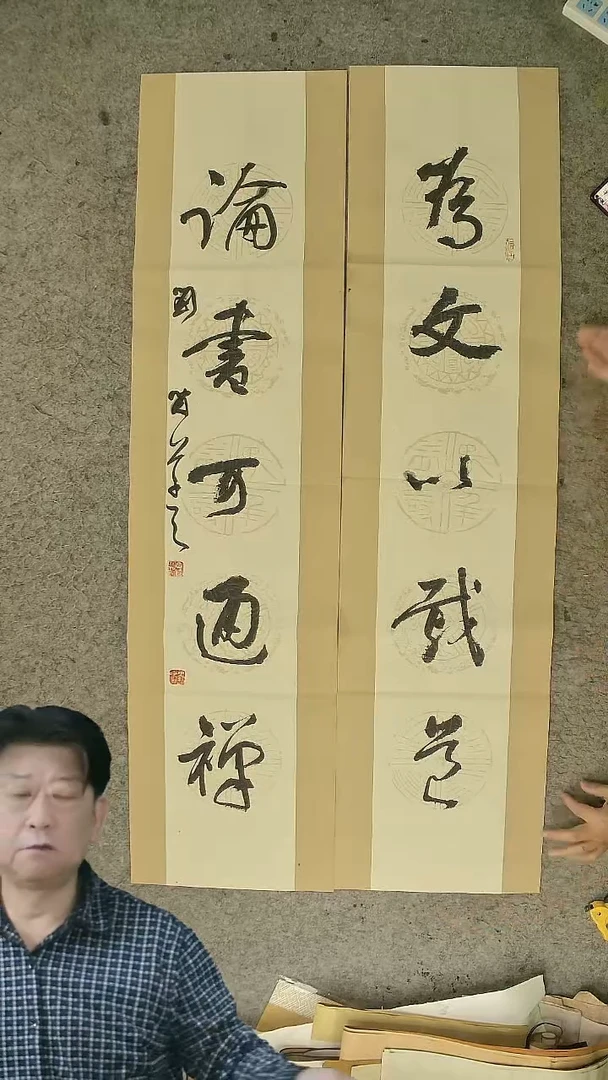 為文以載道
論書可通禪